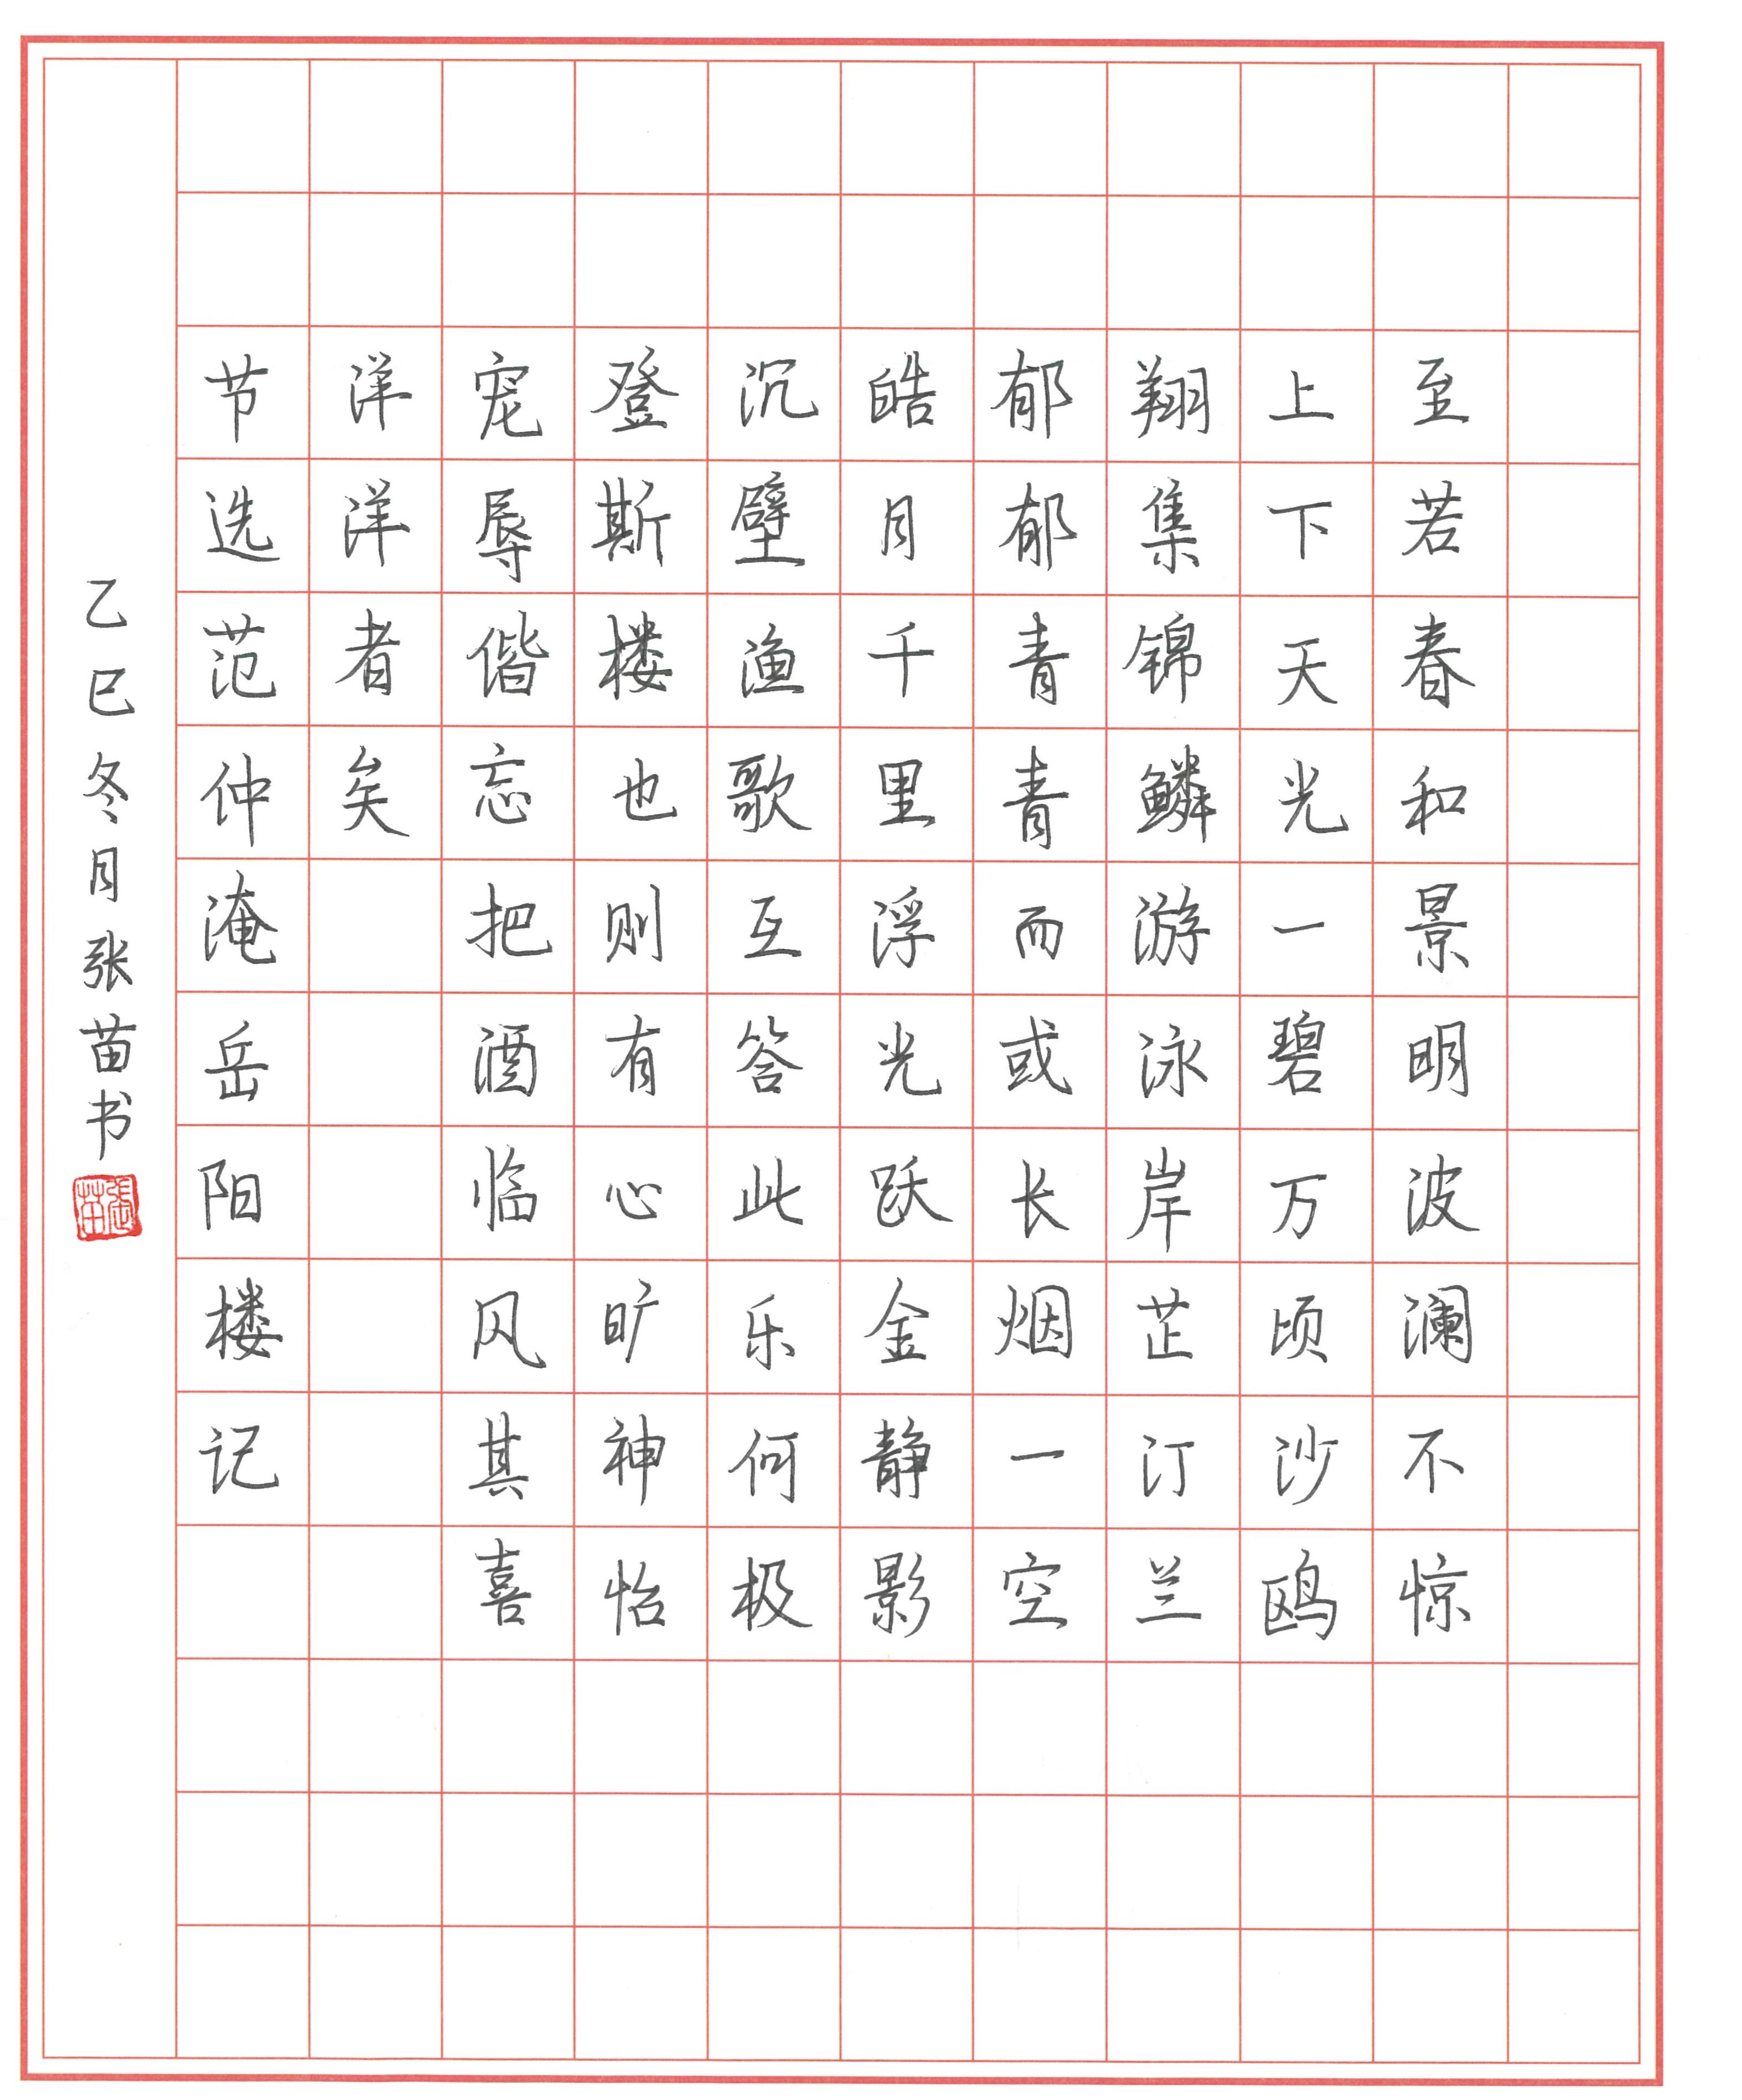 至若春和景明波澜不惊
上下天光一碧万顷沙鸥
翔集锦鳞游泳岸芷汀兰
郁郁青青而或长烟一空
皓月千里浮光跃金静影
沉壁渔歌互答此乐何极
登斯楼也则有心旷神怡
宠辱偕忘把酒临风其喜
洋洋者矣
节选范仲淹岳阳楼记
乙巳冬月张苗书
張苗